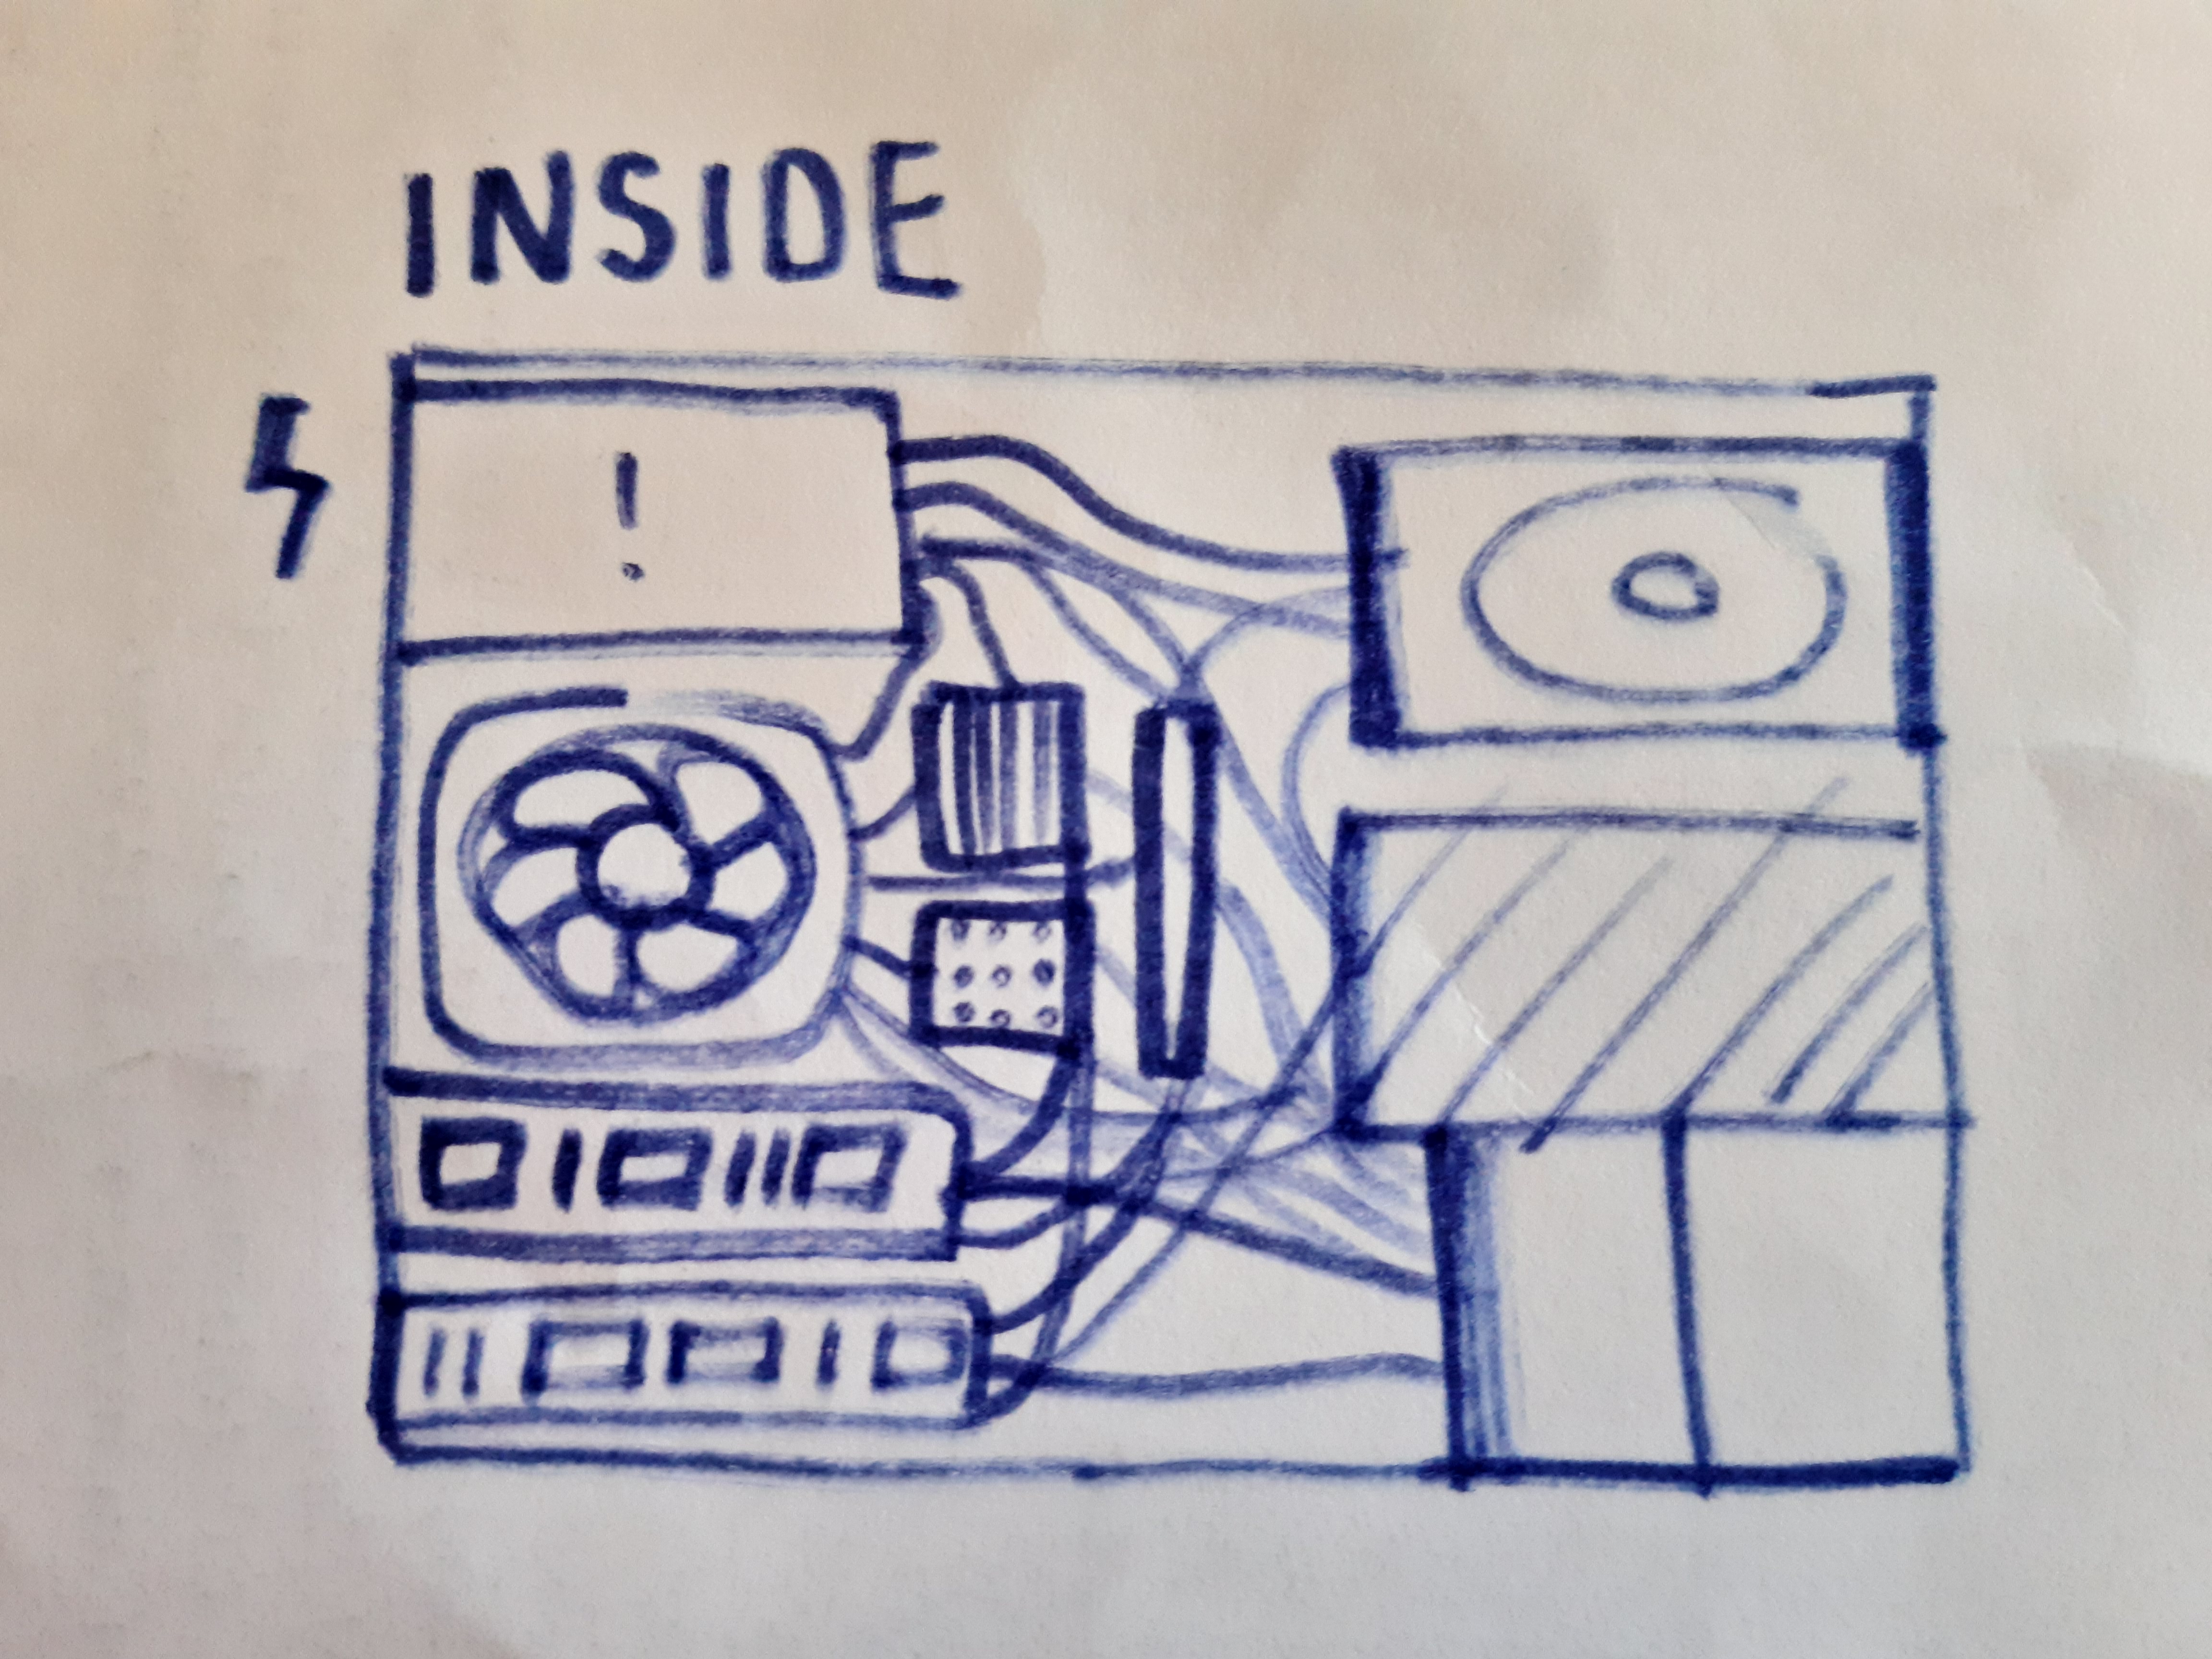 INSIDE
!